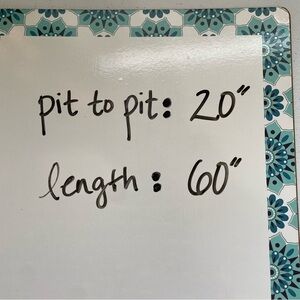 pit to pit: 20"
length: 60"